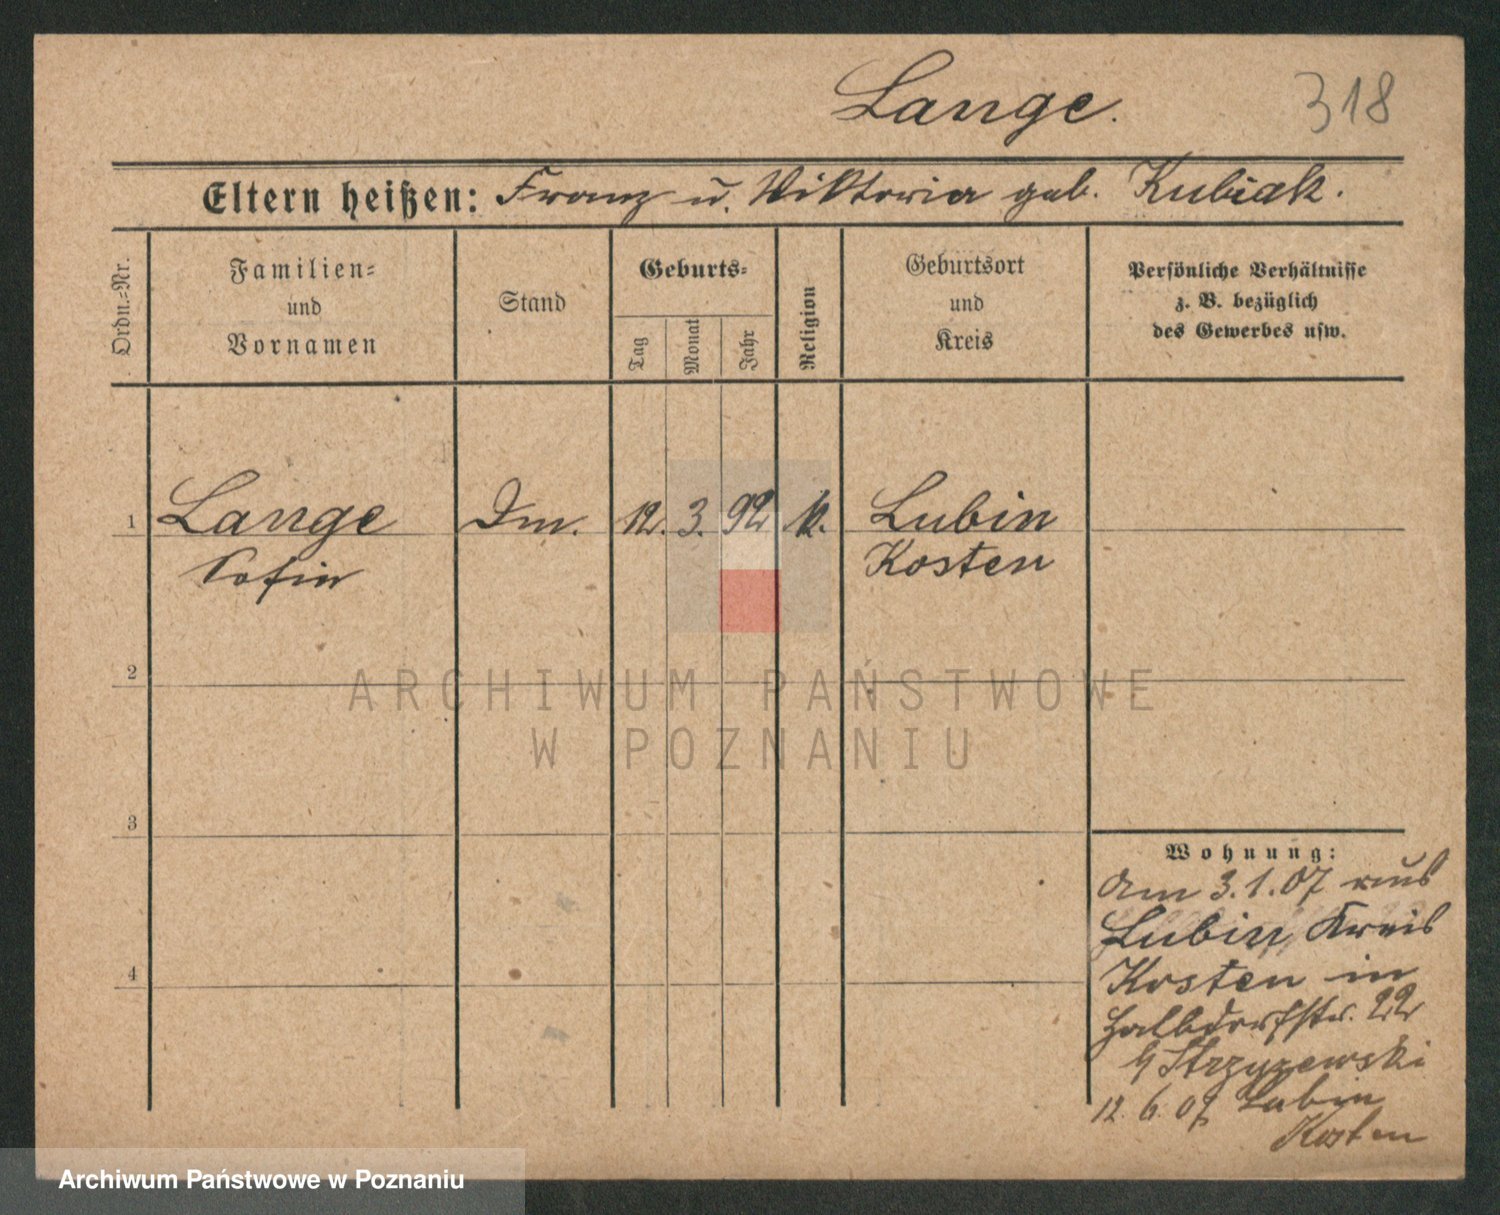 Lange.
318
Eltern heißen: Franz u. Viktoria geb. Kubiak.
Ordn.=Nr.
Familien=
und
Vornamen
Stand
Geburts=
Tag
Monat
Jahr
Religion
Geburtsort
und
Kreis
Persönliche Verhältnisse
z. B. bezüglich
des Gewerbes usw.
1 Lange Dm. 12. 3. 92 k. Lubin
Sofie Kosten
2
ARCHIWUM PAŃSTWOWE
W POZNANIU
3
Wohnung:
Am 3.1.07 aus
Lubin, Kreis
Kosten in
Halbdorfstr. 22
Strzyzewski
4
12.6.07 Lubin
Kosten
Archiwum Państwowe w Poznaniu